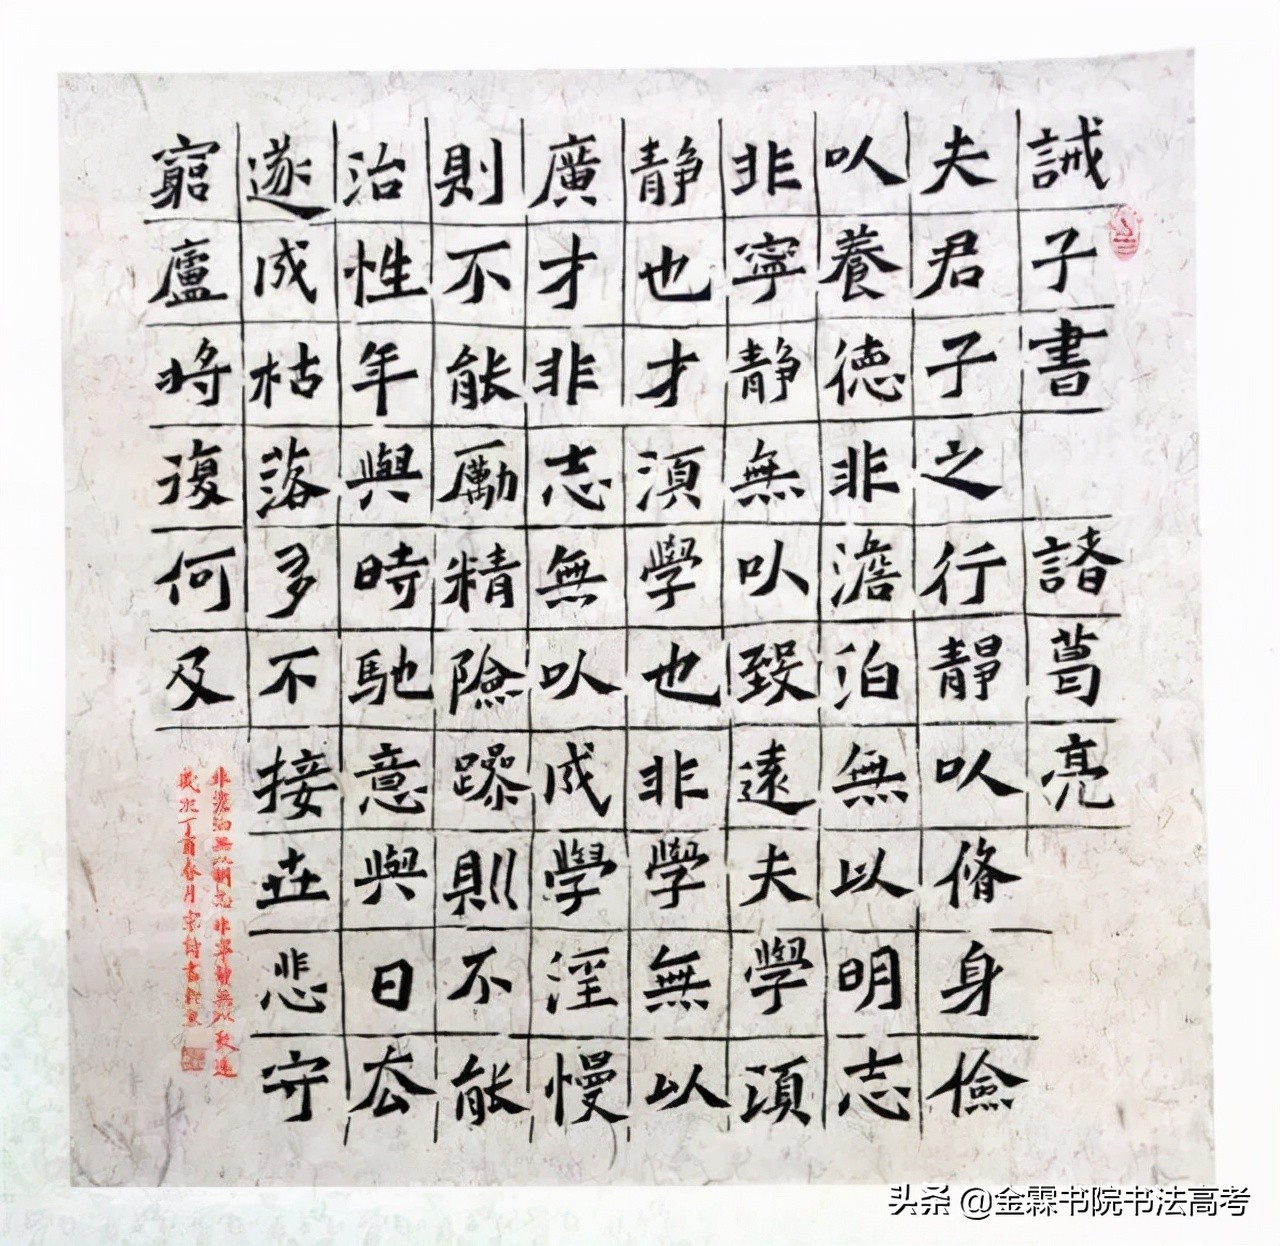 誡子書 諸葛亮
夫君子之行靜以脩身儉
以養德非澹泊無以明志
非寧静無以致遠夫學須
静也才須學也非學無以
廣才非志無以成學淫慢
則不能勵精險躁則不能
治性年與時馳意與日去
遂成枯落多不接世悲守
窮廬將復何及
非澹泊無以明志非寧静無以致遠
歲次丁酉春月
头条 @金霖书院书法高考